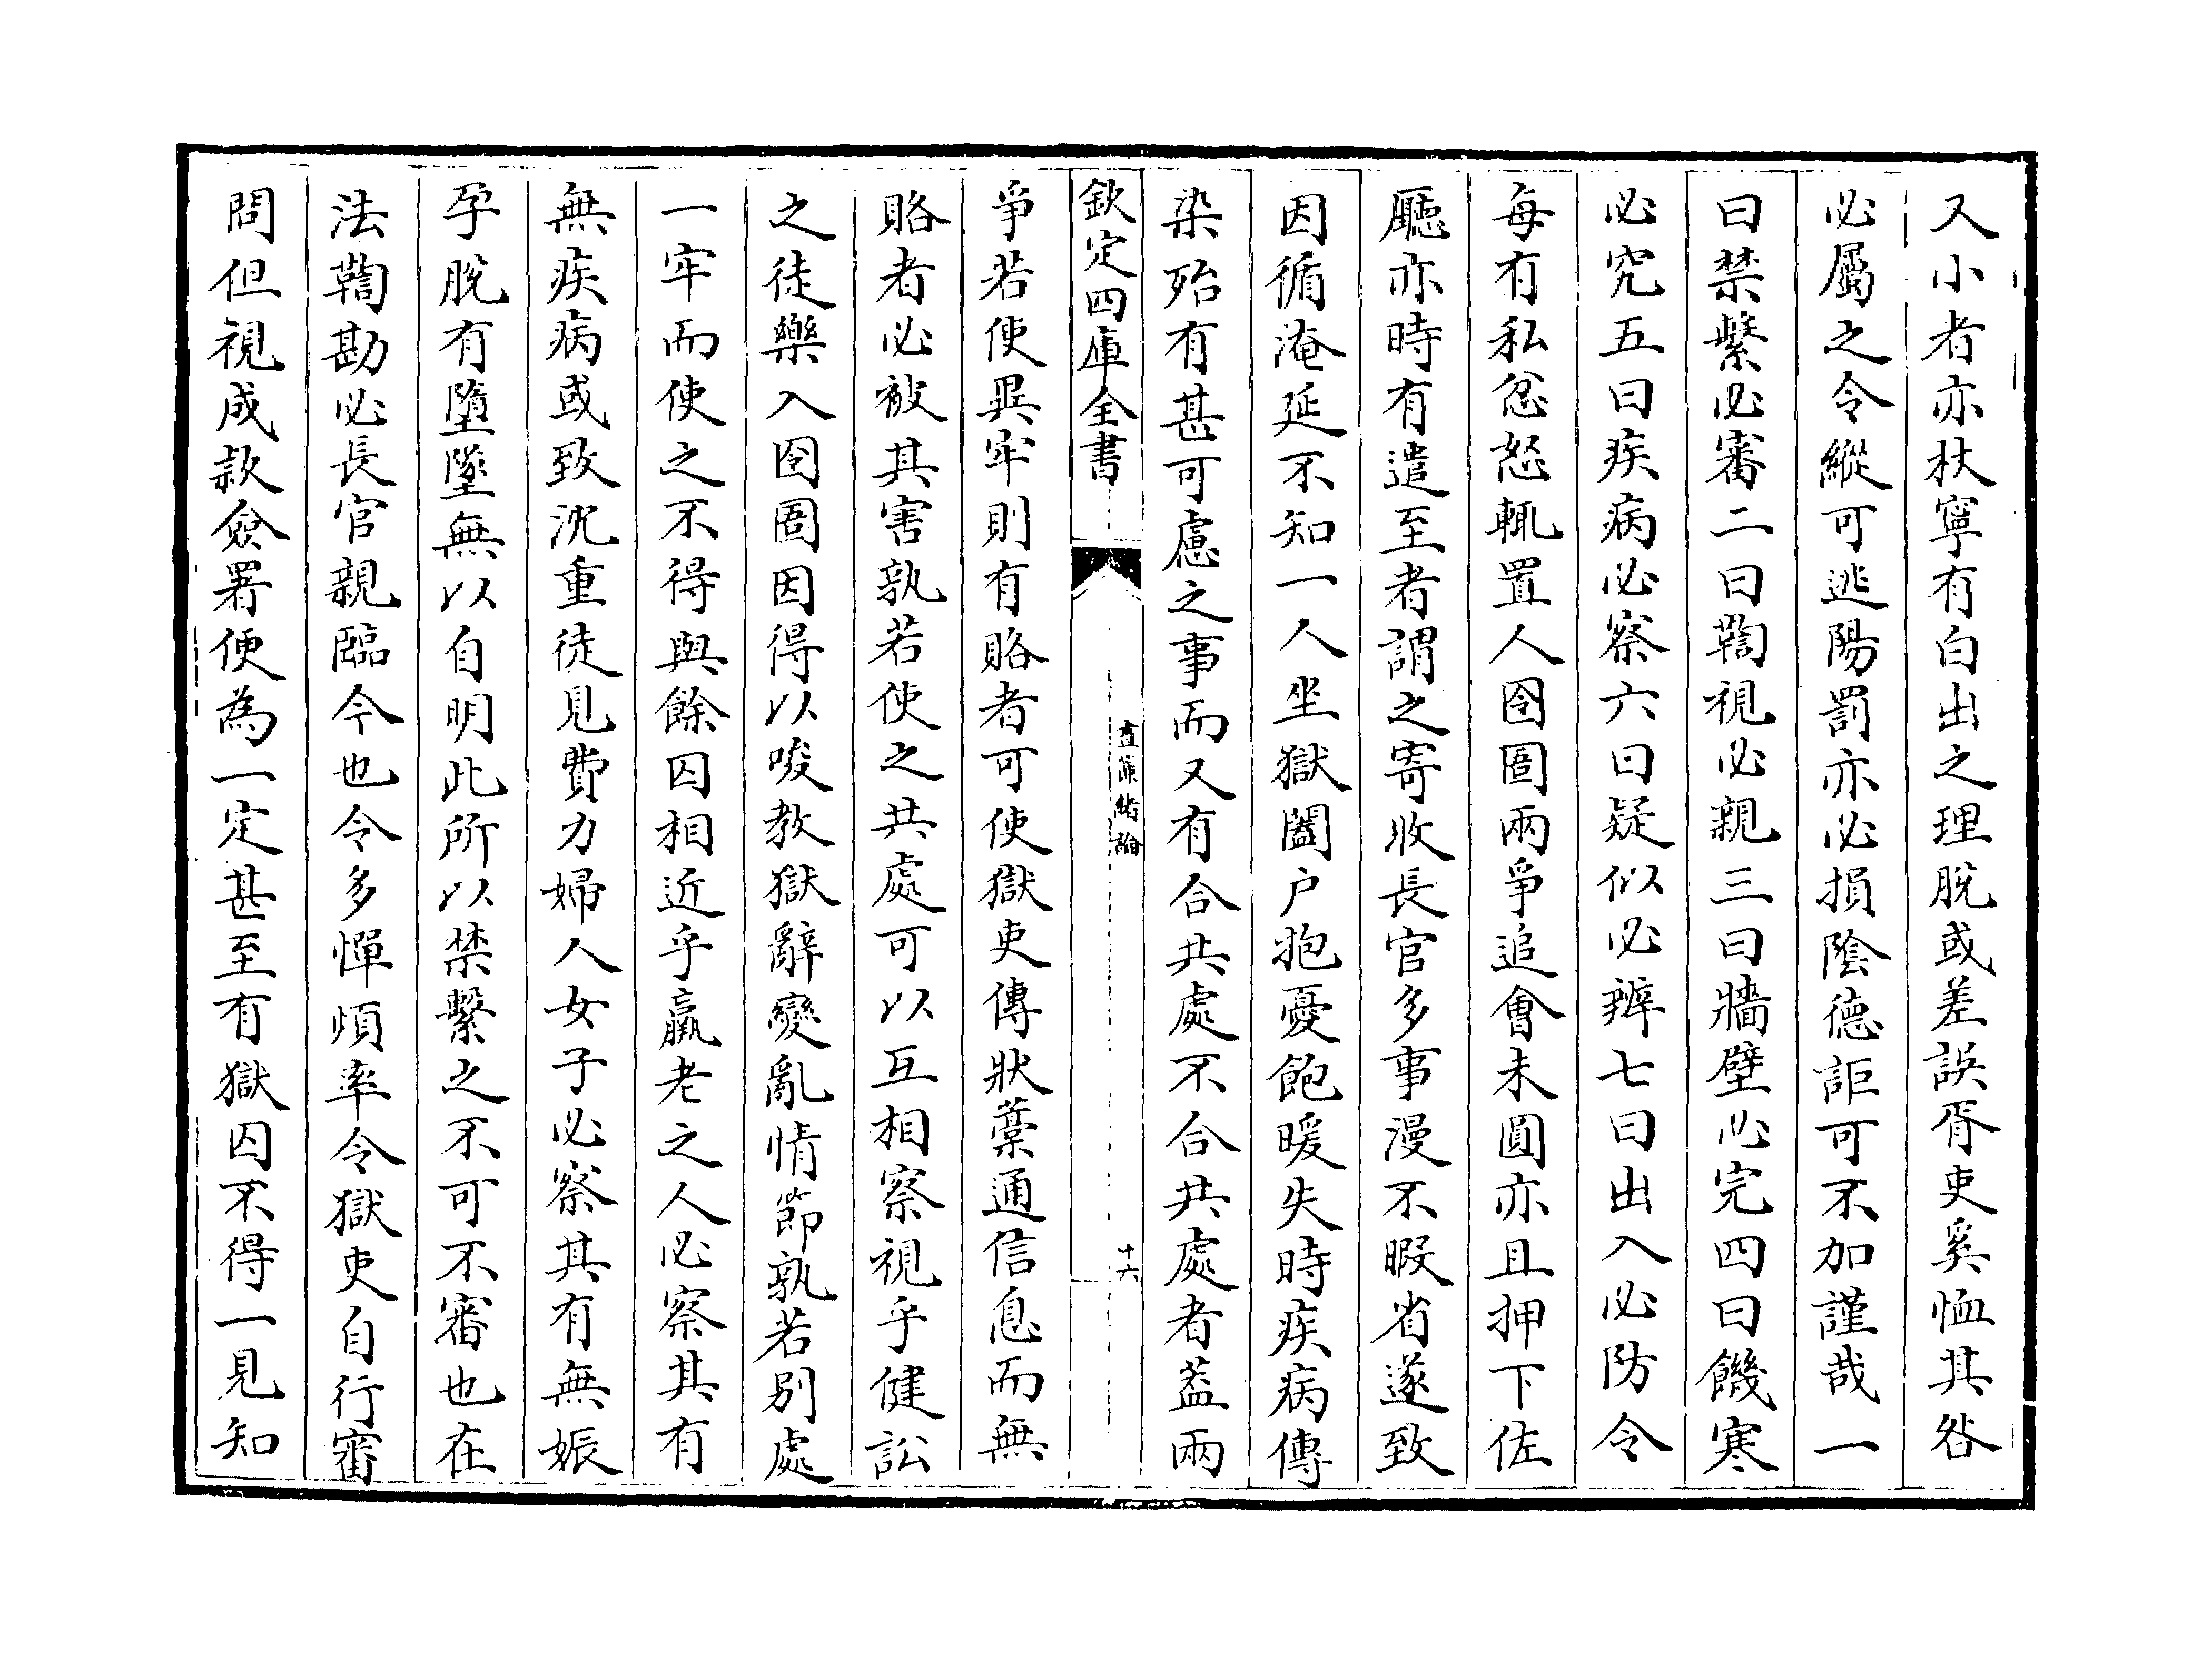 又小者亦杖寧有白出之理脫或差誤胥吏奚恤其咎
必屬之令縱可逃陽罰亦必損陰德詎可不加謹哉一
曰禁繫必審二曰鞫視必親三曰牆壁必完四曰饑寒
必究五曰疾病必察六曰疑似必辨七曰出入必防令
每有私忿怒輒置人囹圄兩爭追會未圓亦且押下佐
廳亦時有遣至者謂之寄收長官多事漫不暇省遂致
因循淹延不知一人坐獄闔户抱憂飽暖失時疾病傳
染殆有甚可慮之事而又有合共處不合共處者葢兩
欽定四庫全書
晝簾緒論
十六
爭若使異牢則有賂者可使獄吏傳狀藁通信息而無
賂者必被其害孰若使之共處可以互相察視乎健訟
之徒樂入囹圄因得以唆教獄辭變亂情節孰若別處
一牢而使之不得與餘囚相近乎羸老之人必察其有
無疾病或致沈重徒見費力婦人女子必察其有無娠
孕脫有墮墜無以自明此所以禁繫之不可不審也在
法鞫勘必長官親臨今也令多憚煩率令獄吏自行審
問但視成款僉署便為一定甚至有獄囚不得一見知